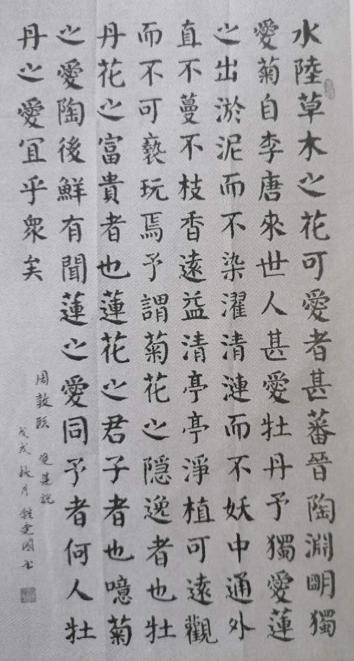 水陸草木之花可愛者甚蕃晉陶淵明獨
愛菊自李唐來世人甚愛牡丹予獨愛蓮
之出淤泥而不染濯清漣而不妖中通外
直不蔓不枝香遠益清亭亭淨植可遠觀
而不可褻玩焉予謂菊花之隱逸者也牡
丹花之富貴者也蓮花之君子者也噫菊
之愛陶後鮮有聞蓮之愛同予者何人牡
丹之愛宜乎衆矣
周敦頤 愛蓮説
戊戌秋月